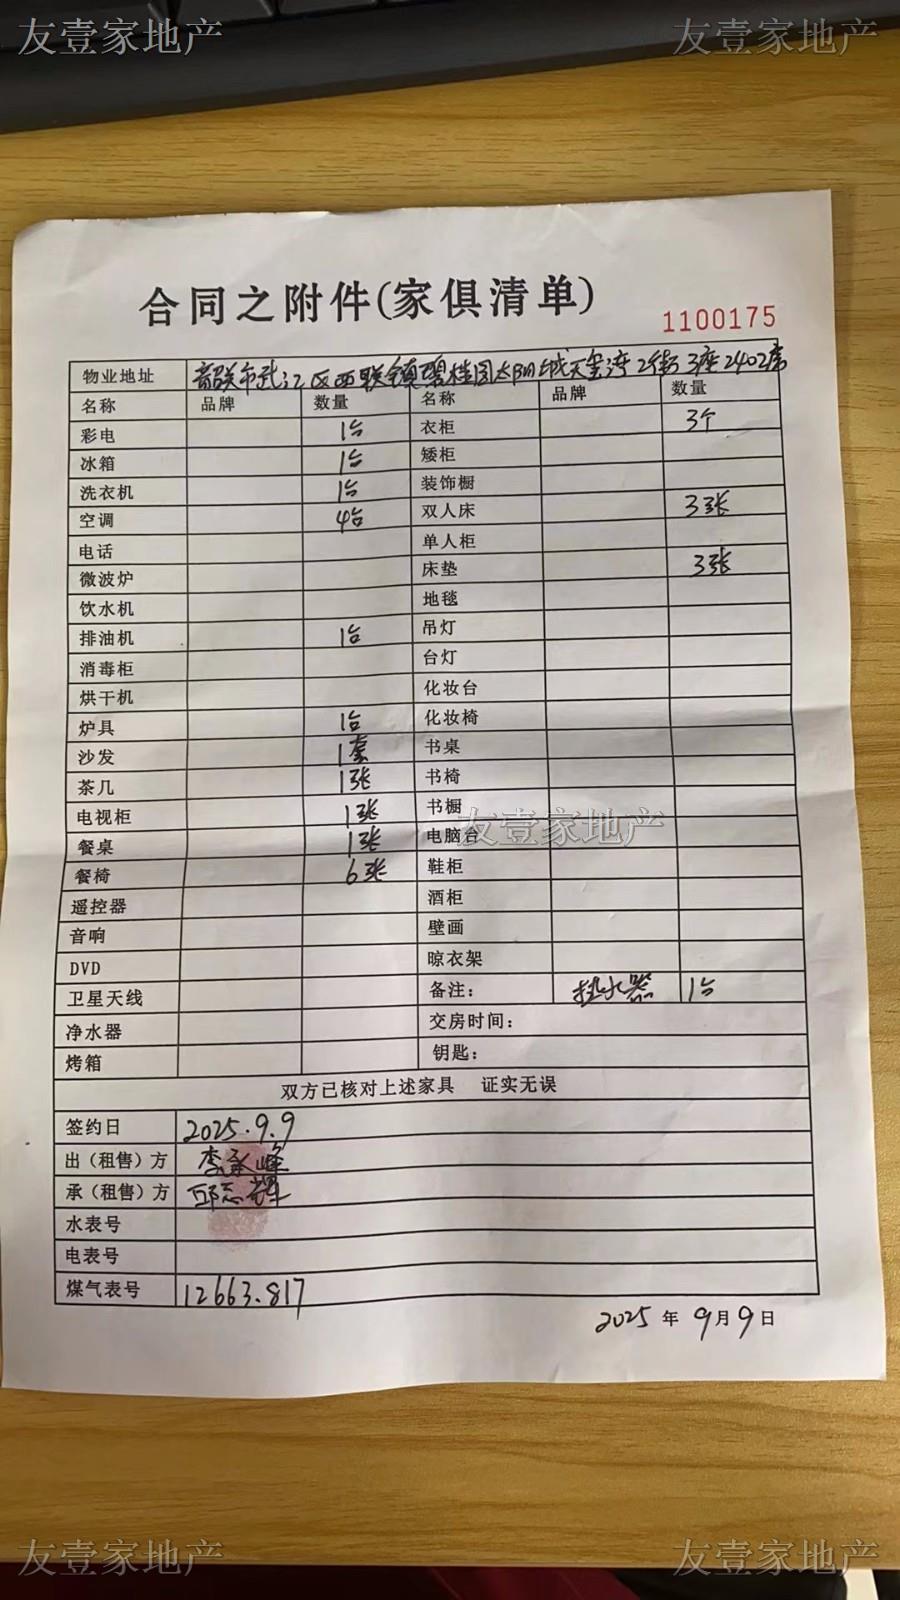 友壹家地产 友壹家地产
合同之附件(家俱清单)
1100175
物业地址 韶关市武江区西联镇碧桂园太阳城天玺湾2街3座2402房
名称 品牌 数量 名称 品牌 数量
彩电 1台 衣柜 3个
冰箱 1台 矮柜
洗衣机 1台 装饰橱
空调 4台 双人床 3张
电话 单人柜
微波炉 床垫 3张
饮水机 地毯
排油机 1台 吊灯
消毒柜 台灯
烘干机 化妆台
炉具 1台 化妆椅
沙发 1套 书桌
茶几 1张 书椅
电视柜 1张 书橱
友壹家地产
餐桌 1张 电脑台
餐椅 6张 鞋柜
遥控器 酒柜
音响 壁画
DVD 晾衣架
卫星天线 备注: 热水器 1台
净水器 交房时间:
烤箱 钥匙:
双方已核对上述家具 证实无误
签约日 2025.9.9
出（租售）方 李承峰
承（租售）方 邱志辉
水表号
电表号
煤气表号 12663.817
2025年9月9日
友壹家地产 友壹家地产